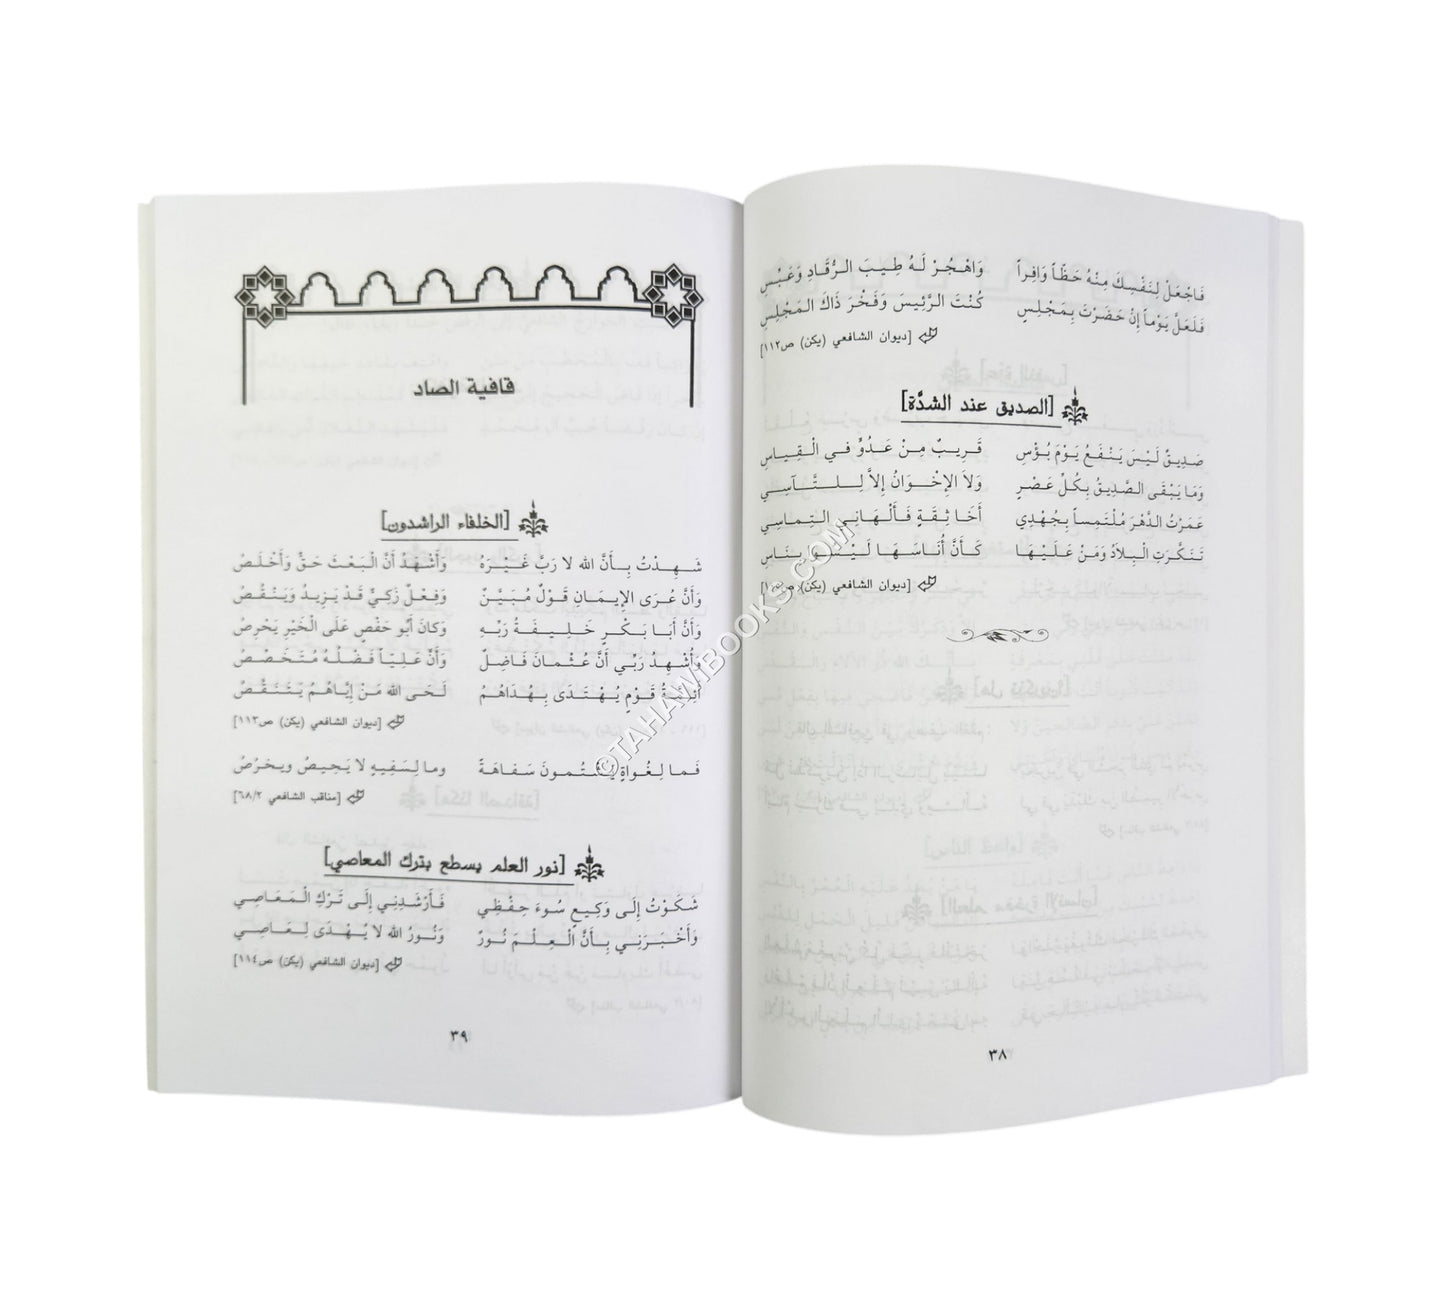 فَاجْعَلْ لِنَفْسِكَ مِنْهُ حَظّاً وَافِراً وَاهْجُرْ لَهُ طِيبَ الرُّقَادِ وَعَبْسِ
فَلَعَلَّ يَوْماً إنْ حَضَرْتَ بِمَجْلِسٍ كُنْتَ الرَّئِيسَ وَفَخْرَ ذَاكَ المَجْلِسِ
[ديوان الشافعي (يكن) ص١١٢]
[الصديق عند الشدَّة]
صَدِيقٌ لَيْسَ يَنْفَعُ يَوْمَ بُؤْسِ قَرِيبٌ مِنْ عَدُوٍّ في الْقِيَاسِ
وَمَا يَبْقَى الصَّدِيقُ بِكُلِّ عَصْرٍ وَلاَ الإخْوَانُ إلاَّ لِلتَّآسِي
عَمَرْتُ الدَّهْرَ مُلْتَمِساً بِجُهْدِي أَخَا ثِقَةٍ فَأَلْهَانِي التِمَاسِي
تَنَكَّرَتِ الْبِلاَدُ وَمَنْ عَلَيْهَا كَأَنَّ أُنَاسَهَا لَيْسُوا بِنَاسِ
[ديوان الشافعي (يكن)
٣٨
قافية الصاد
[الخلفاء الراشدون]
شَهِدْتُ بِأَنَّ الله لا رَبَّ غَيْرَهُ وَأَشْهَدُ أَنَّ الْبَعْثَ حَقٌّ وَأَخْلَصُ
وَأَنَّ عُرَى الإيمَانِ قَوْلٌ مُبَيَّنٌ وَفِعْلٌ زَكِيٌّ قَدْ يَزِيدُ وَيَنْقُصُ
وَأَنَّ أَبَا بَكْرٍ خَلِيفَةُ رَبِّهِ وَكانَ أَبُو حَفْصٍ عَلَى الْخَيْرِ يَحْرِصُ
وَأُشْهِدُ رَبِّي أَنَّ عُثْمَانَ فَاضِلٌ وَأَنَّ عَلِيّاً فَضْلُهُ مُتَخَصِّصُ
أَئِمَّةُ قَوْمٍ يُهْتَدَى بِهُدَاهُمُ لَحَى الله مَنْ إيَّاهُمُ يَتَنَقَّصُ
[ديوان الشافعي (يكن) ص١١٣]
فَما لِغُواةٍ يَشْتُمونَ سَفَاهَةً وما لِسَفِيهٍ لا يَحِيصُ ويخرُصُ
[مناقب الشافعي ٦٨/٢]
[نور العلم يسطع بترك المعاصي]
شَكَوْتُ إلَى وَكِيعٍ سُوءَ حِفْظِي فَأَرْشَدَنِي إلَى تَرْكِ الْمَعَاصِي
وَأَخْبَرَنِي بِأَنَّ الْعِلْمَ نُورٌ وَنُورُ الله لا يُهْدَى لِعَاصِي
[ديوان الشافعي (يكن) ص١١٤]
٣٩
©TAHAMBOOKS.COM